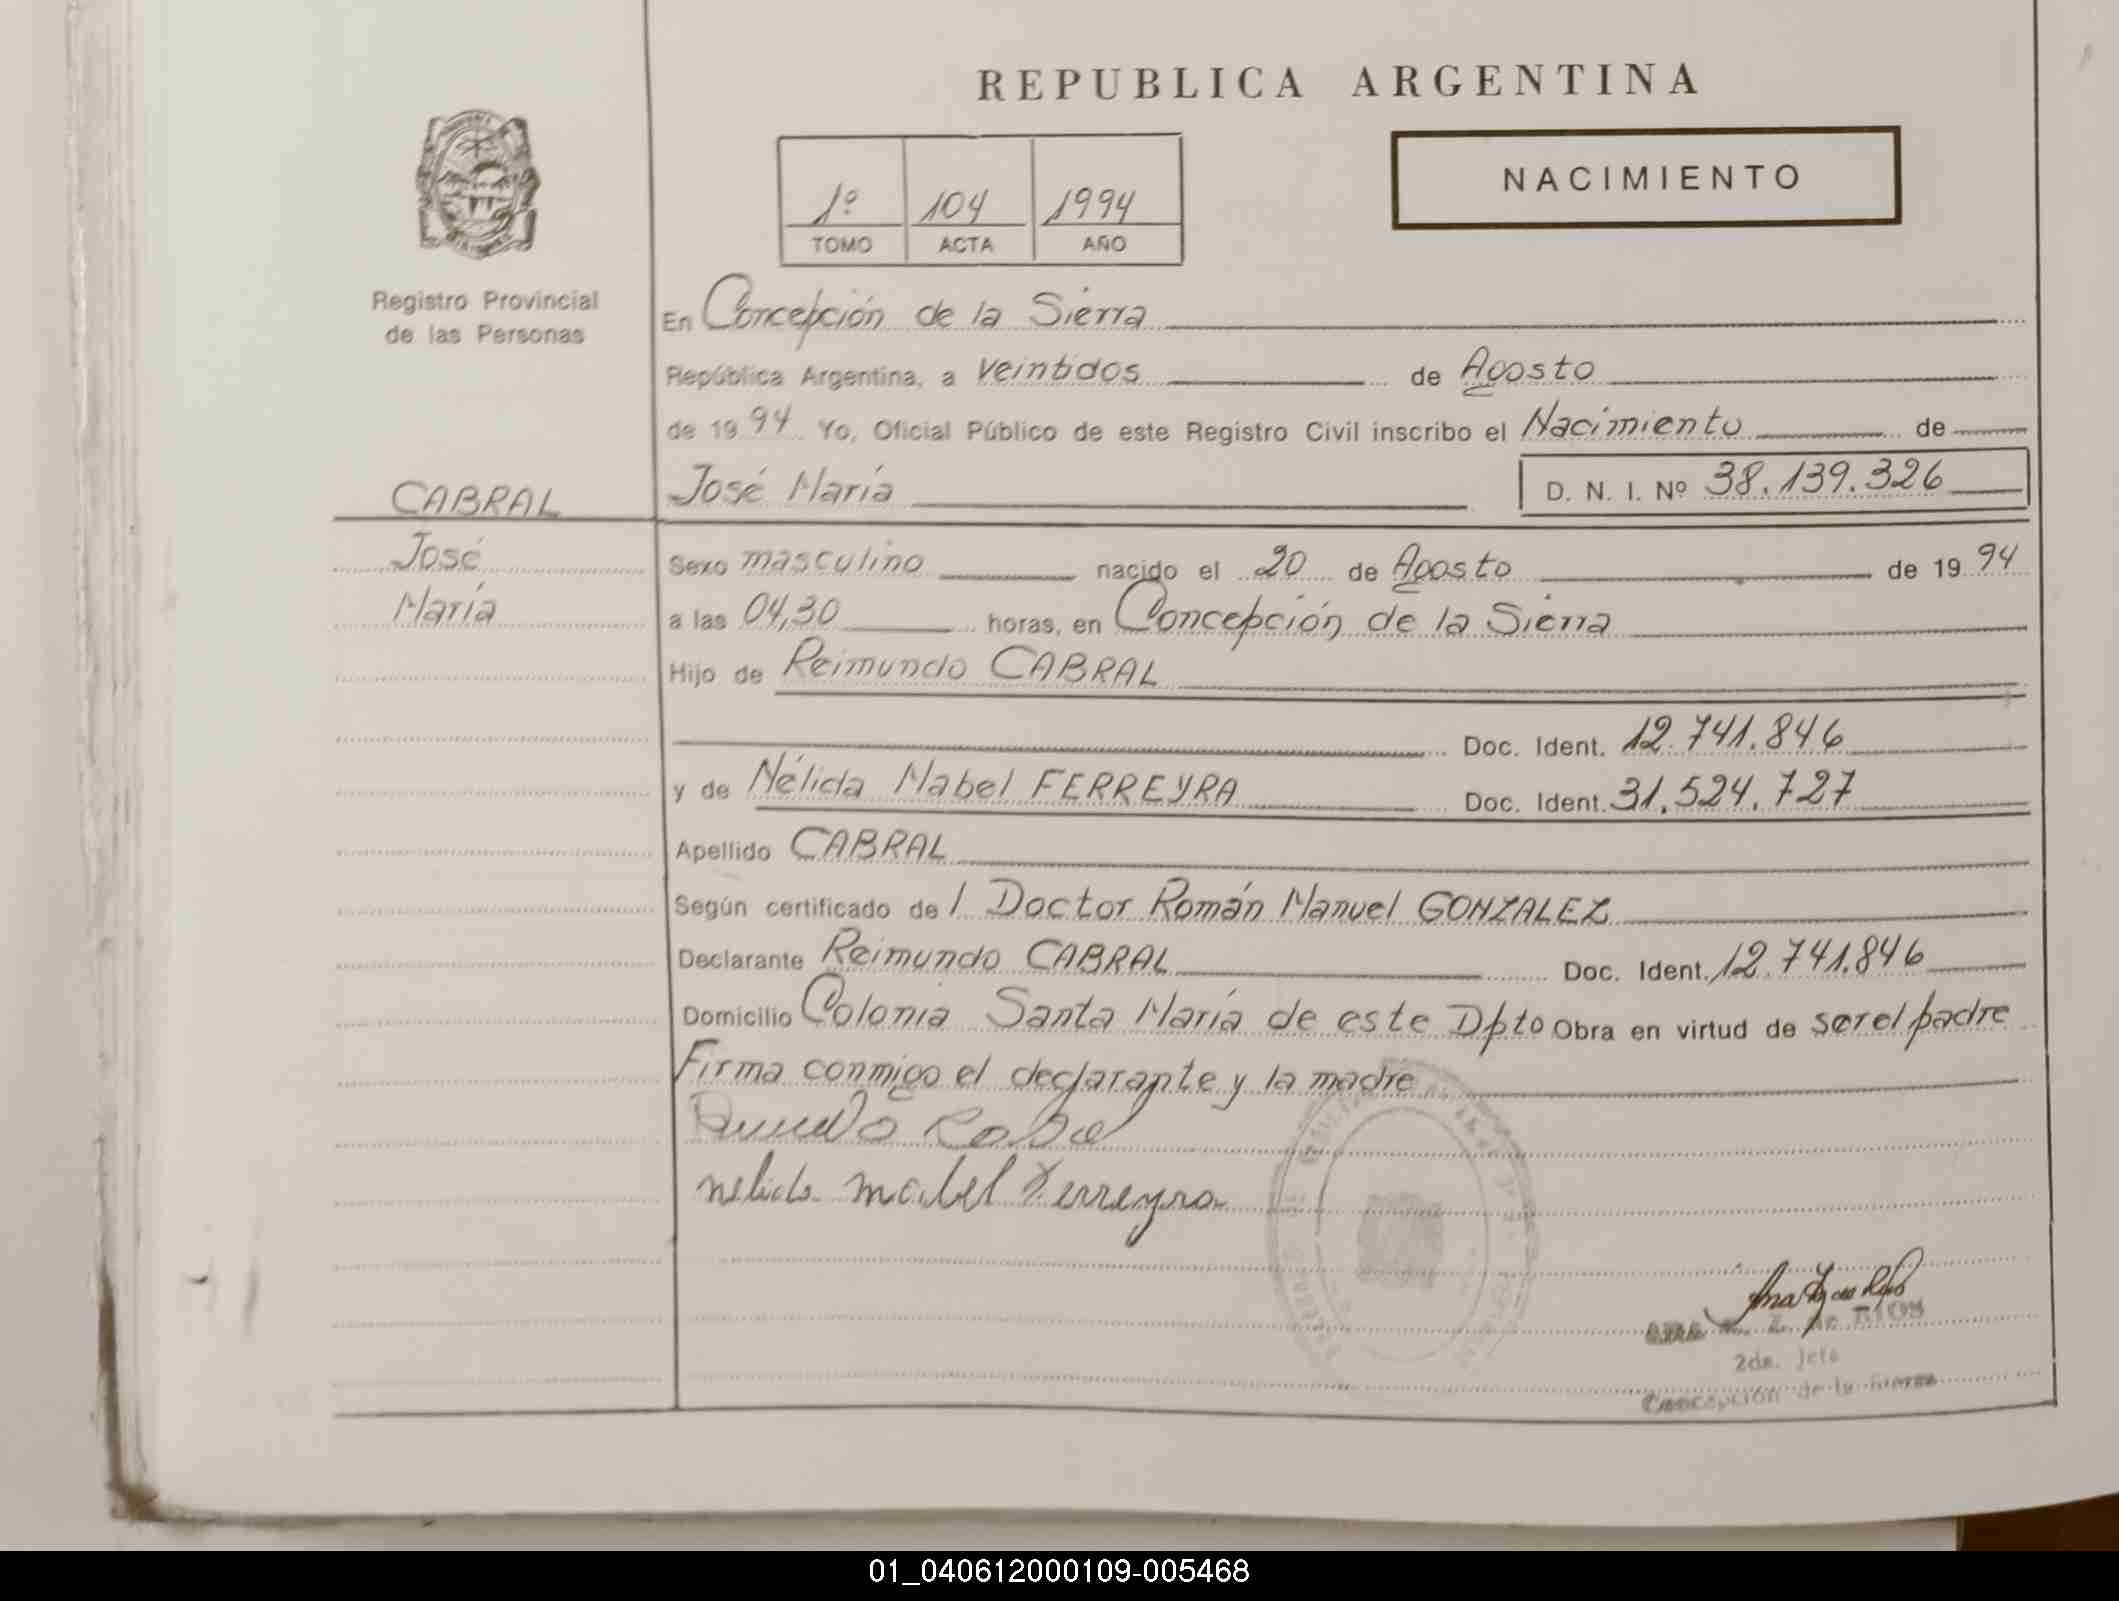 REPUBLICA ARGENTINA
NACIMIENTO
1º 104 1994
TOMO ACTA AÑO
Registro Provincial
de las Personas
En Concepción de la Sierra
República Argentina, a Veintidos de Agosto
de 1994 Yo, Oficial Público de este Registro Civil inscribo el Nacimiento de
CABRAL
José María D. N. I. Nº 38.139.326
José
María
Sexo masculino nacido el 20 de Agosto de 1994
a las 04,30 horas, en Concepción de la Sierra
Hijo de Reimundo CABRAL
Doc. Ident. 12.741.846
y de Nélida Mabel FERREYRA Doc. Ident. 31.524.727
Apellido CABRAL
Según certificado del Doctor Román Manuel GONZALEZ
Declarante Reimundo CABRAL Doc. Ident. 12.741.846
Domicilio Colonia Santa María de este Dpto Obra en virtud de ser el padre
Firma conmigo el declarante y la madre
nelida mabel Ferreyra
de RIOS
2da. Jefa
Concepción de la Sierra
01_040612000109-005468